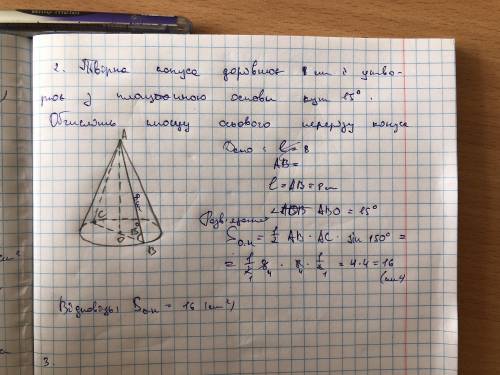 2. Твірна конуса дорівнює 8 см і утво-
рює з площиною основи кут 15°.
Обчисліть площу осьового перерізу конуса
A
Дано: l = 8
AB =
l = AB = 8 см
∠ABO = 15°
Розв'язання
S = 1/2 AB · AC · sin 150° =
= 1/2 8 · 8 · 1/2 = 4 · 4 = 16
(см²)
C
O
B
Відповідь: S = 16 (см²)
3.